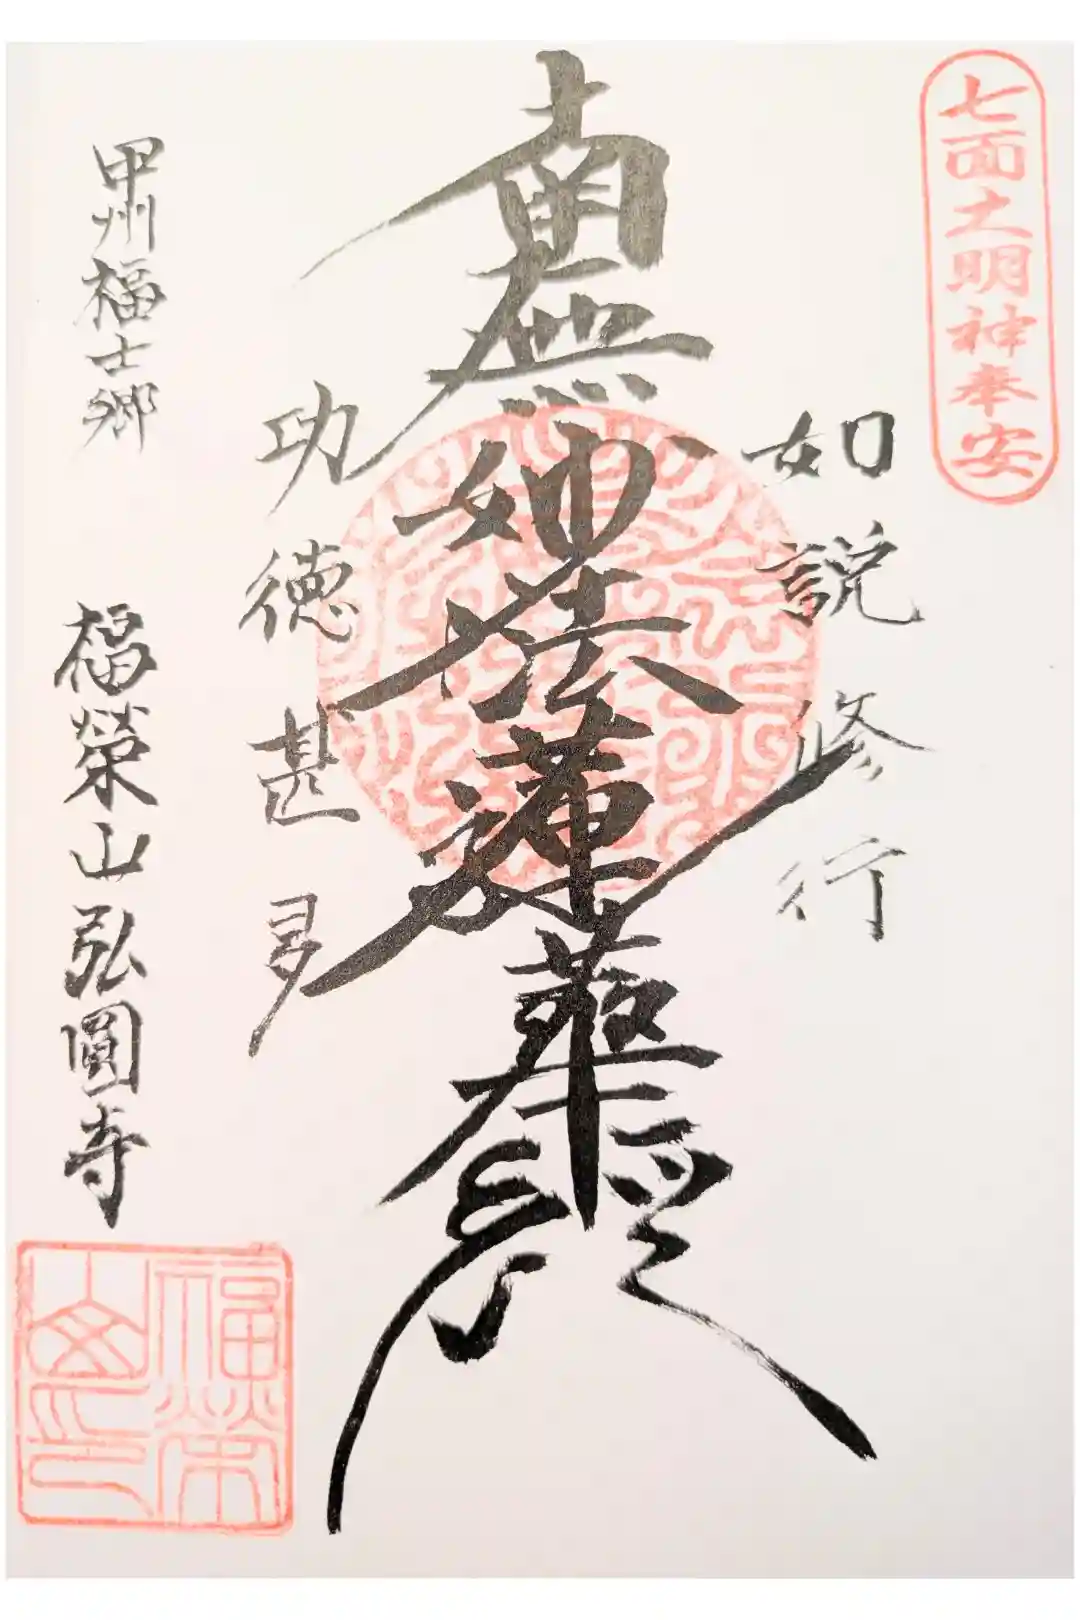 七面大明神奉安
如説修行
南無妙法蓮華経
功徳甚多
甲州福士郷
福榮山弘圓寺
福榮
山印